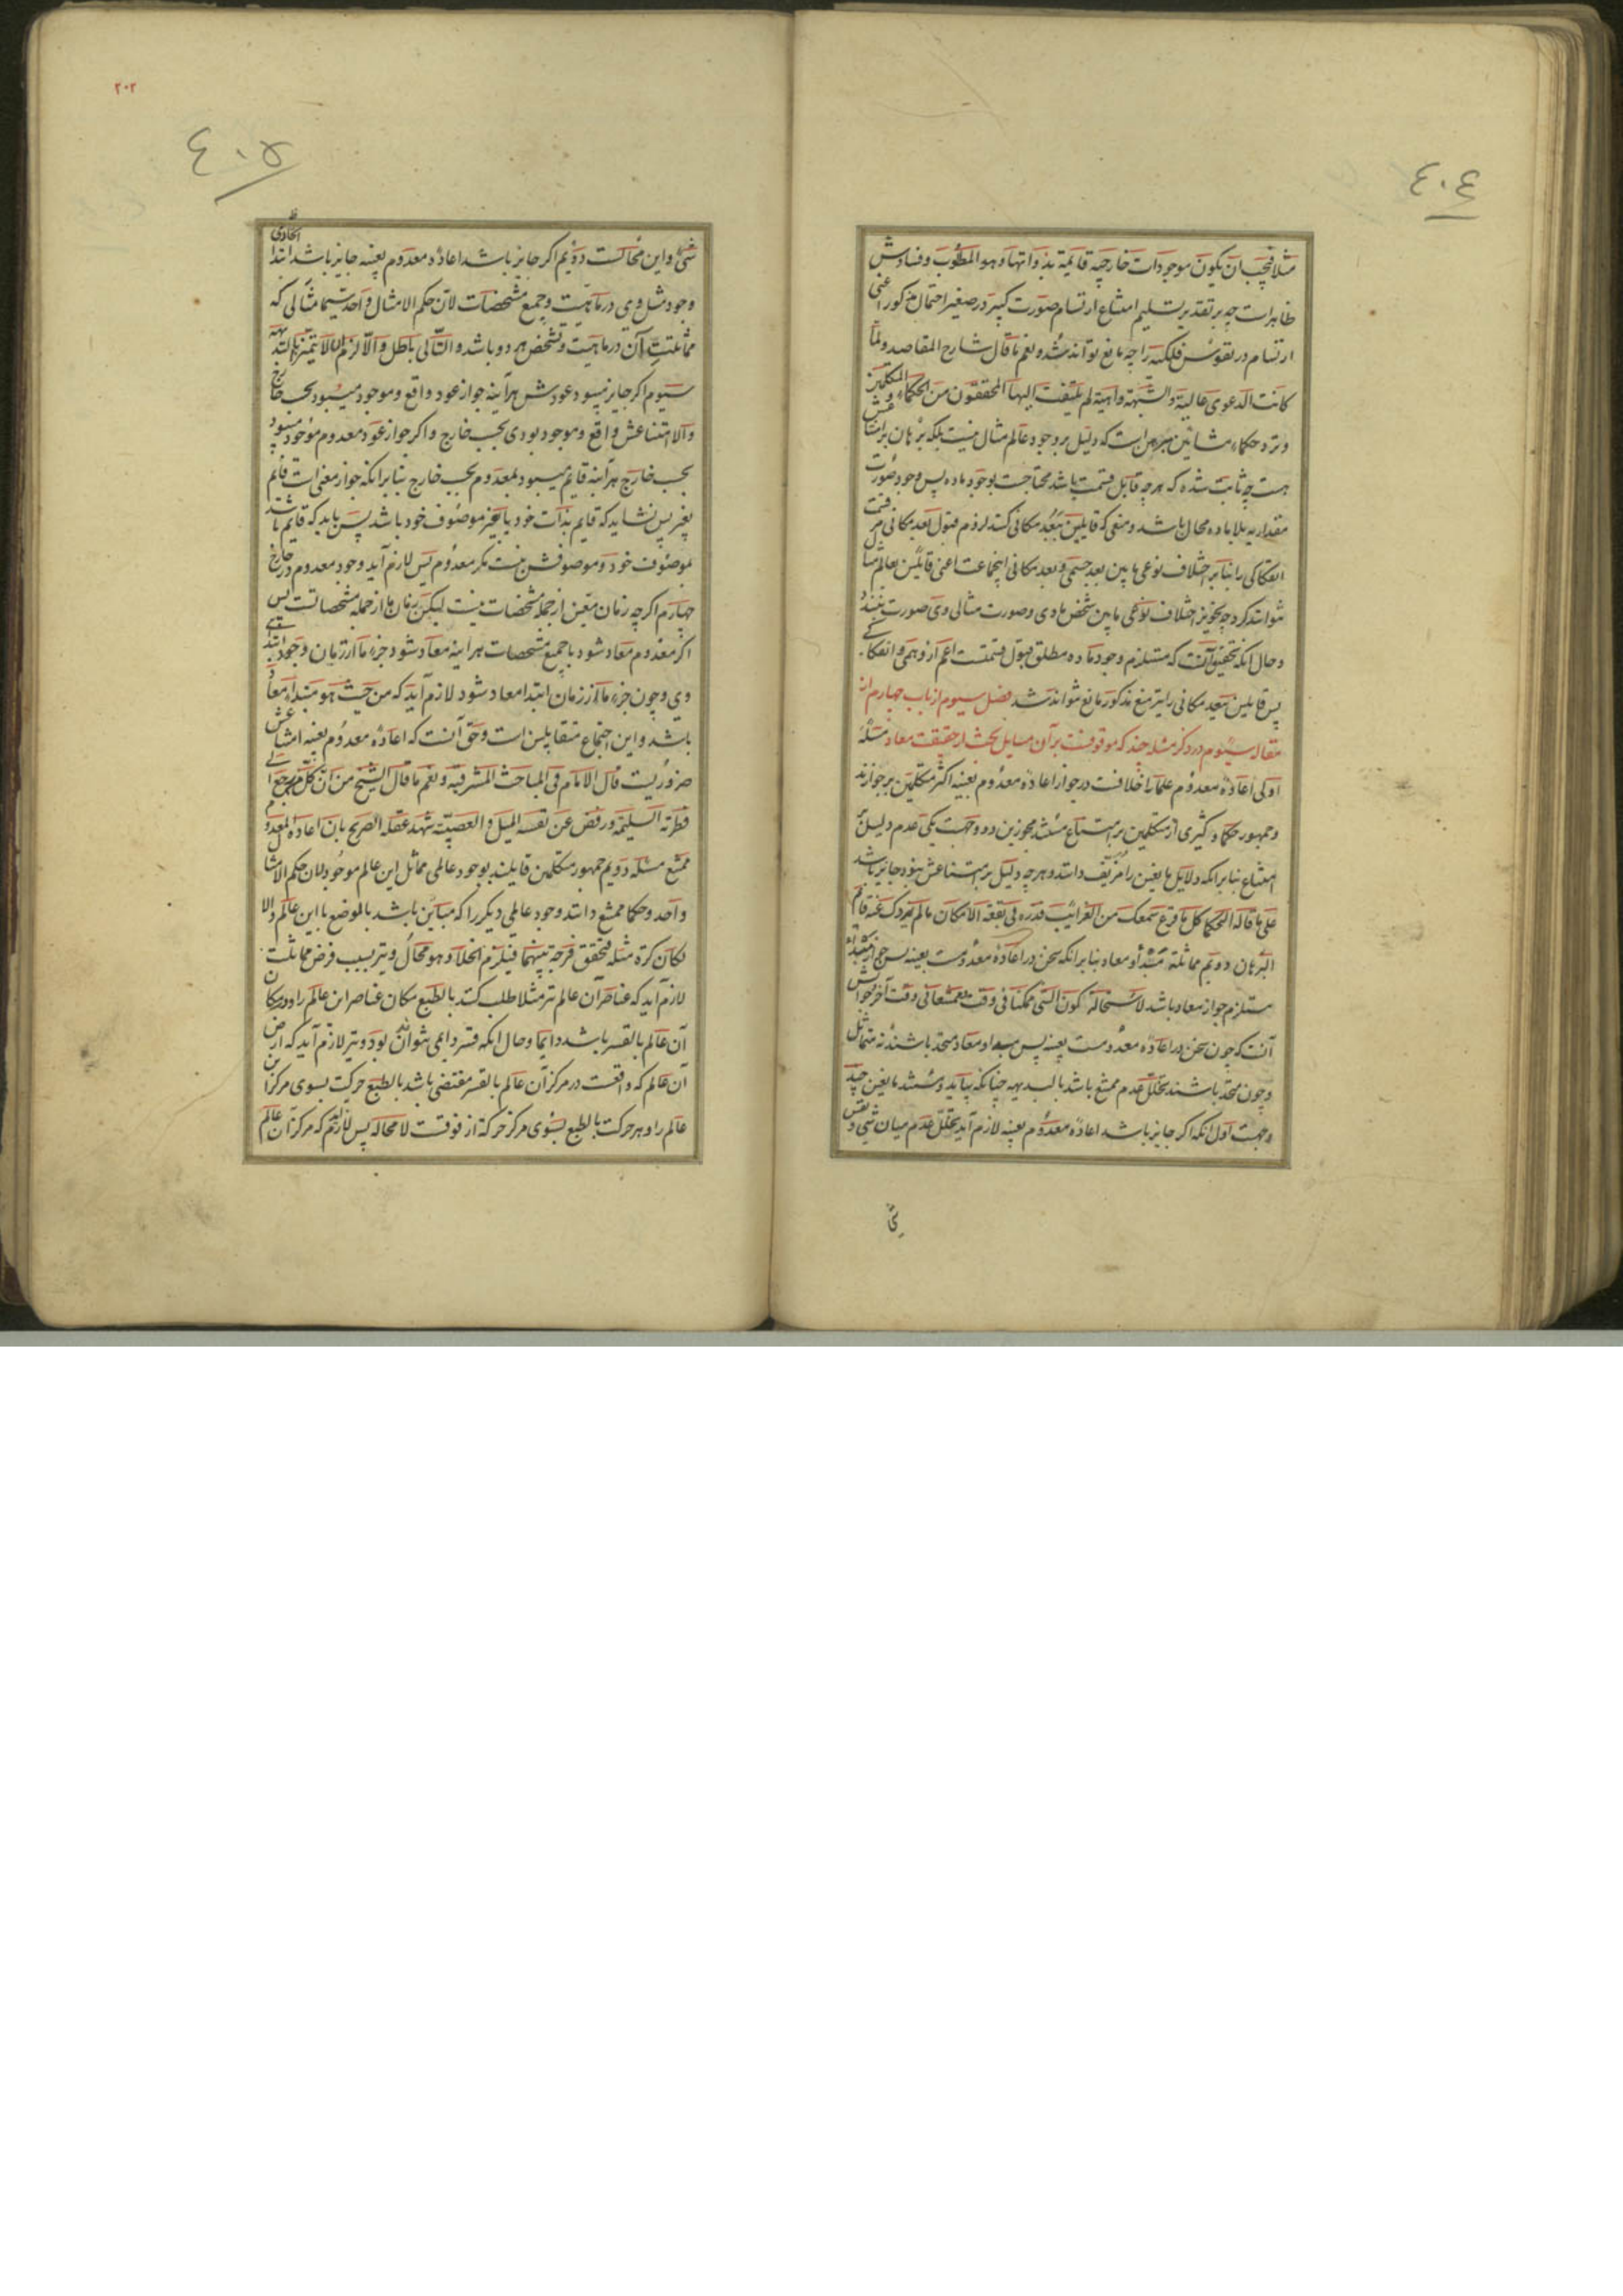 ٤٠٤
مثلا فیجب ان یکون موجودات خارجیه قایمة بذواتها و هو المطلوب و فسادش
ظاهر است چه بر تقدیر تسلیم امتناع ارتسام صورت کبیر در صغیر احتمال مذکور اعنی
ارتسام در نفوس فلکیه را چه مانع تواند شد و نعم ما قال شارح المقاصد و لما
کانت الدعوی عالیة و الشبهة واهیة لم یلتفت الیها المحققون من الحکماء و المتکلمین
و نزد حکماء مشائین مبرهن است که دلیل بر وجود عالم مثال نیست بلکه برهان بر امتناعش
هست چه ثابت شده که هر چه قابل قسمت باشد محتاجست بوجود ماده پس وجود صورت
مقداریه بلا ماده محال باشد و منعی که قایلین ببعد مکانی کنند لزوم قبول بعد مکانی مر قسمت
انفکاکی را بنا بر اختلاف نوعی ما بین بعد جسمی و بعد مکانی اینجماعت اعنی قایلین بعالم مثال
نتوانند کرد چه تجویز اختلاف نوعی ما بین شخص مادی و صورت مثالی وی صورت نبندد
و حال انکه تحقیق آنست که مستلزم وجود ماده مطلق قبول قسمتست اعم از وهمی و انفکاکی
پس قایلین ببعد مکانی را نیز منع مذکور مانع نتواند شد فصل سیوم از باب چهارم از
مقاله سیوم در ذکر مسئله چند که موقوفست بر آن مسایل بحث از حقیقت معاد مسئله
اولی اعاده معدوم علما را خلافست در جواز اعاده معدوم بعینه اکثر متکلمین بر جوازند
و جمهور حکما و کثیری از متکلمین بر امتناع مستند مجوزین دو وجهست یکی عدم دلیل بر
امتناع بنا بر انکه دلایل مانعین را مزیف دانند و هر چه دلیل بر امتناعش نبود جایز باشد
علی ما قاله الحکما کل ما قرع سمعک من الغرائب فذره فی بقعة الامکان ما لم یذدک عنه قائم
البرهان دویم مماثلة مبتدأ و معاد بنا بر انکه سخن در اعاده معدومست بعینه پس جواز مبتدأ
مستلزم جواز معاد باشد لاستحالة کون الشی ممکنا فی وقت ممتنعا فی وقت آخر جوابش
آنست که چون سخن در اعاده معدومست بعینه پس مبداء و معاد متحد باشند نه متماثل
و چون متحد باشند تخلل عدم ممتنع باشد بالبدیهه چنانکه بیاید و مستند مانعین چند
وجهست اول انکه اکر جایز باشد اعاده معدوم بعینه لازم آید تخلل عدم میان شی و نفس
٢٠٢
٤٠٥
شی و این محالست دویم اکر جایز باشد اعاده معدوم بعینه جایز باشد ابتداء
وجود مثل وی در ماهیت و جمیع مشخصات لان حکم الامثال واحد سیما مثالی که
مماثلت آن در ماهیت و تشخص هر دو باشد و التالی باطل و الا لزم ان لا یتمیزا بالبدیهة
سیوم اکر جایز میبود عودش هرآینه جواز عود واقع و موجود میبود بحسب خارج
و الا امتناعش واقع و موجود بودی بحسب خارج و اکر جواز عود معدوم موجود میبود
بحسب خارج هرآینه قایم میبود بمعدوم بحسب خارج بنا بر انکه جواز معنی است قائم
بغیر پس نشاید که قایم بذات خود یا بغیر موصوف خود باشد پس باید که قایم باشد
بموصوف خود و موصوفش نیست مکر معدوم پس لازم آید وجود معدوم در خارج
چهارم اکر چه زمان معین از جمله مشخصات نیست لیکن زمان ما از جمله مشخصاتست پس
اکر معدوم معاد شود با جمیع مشخصات هرآینه معاد شود جزء ما از زمان وجود ابتدای
وی و چون جزء ما از زمان ابتدا معاد شود لازم آید که من حیث هو مبتداء معاد
باشد و این اجتماع متقابلین است و حق آنست که اعاده معدوم بعینه امتناعش
ضروریست قال الامام فی المباحث المشرقیه و نعم ما قال الشیخ من ان کل من رجع الی
فطرته السلیمة و رفض عن نفسه المیل و العصبیة شهد عقله الصریح بان اعادة المعدوم
ممتنع مسئله دویم جمهور متکلمین قایلند بوجود عالمی مماثل این عالم موجود لان حکم الامثال
واحد و حکما ممتنع دانند وجود عالمی دیکر را که مباین باشد بالموضع با این عالم و الا
لکان کرة مثله فتحقق فرجة بینهما فیلزم الخلاء و هو محال و نیز بسبب فرض مماثلت
لازم آید که عناصر آن عالم نیز مثلا طلب کنند بالطبع مکان عناصر این عالم را و در مکان
آن عالم بالقسر باشند دایما و حال انکه قسر دایمی نتواند بود و نیز لازم آید که ارض
آن عالم که واقعست در مرکز آن عالم بالقسر مقتضی باشد بالطبع حرکت بسوی مرکز این
عالم را و هر حرکت بالطبع بسوی مرکز حرکة از فوقست لا محاله پس لازم آید که مرکز آن عالم